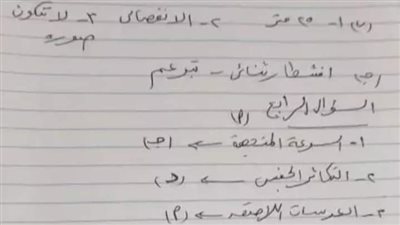 (ب) ١- ٢٥ متر ٢- الانفصالى ٣- لا تتكون
صورة
(جـ) انشطار ثنائى - تبرعم
السؤال الرابع (أ)
١- السرعة المتجهة ← (جـ)
٢- التكاثر الجنسى ← (د)
٣- العدسات اللاصقة ← (أ)